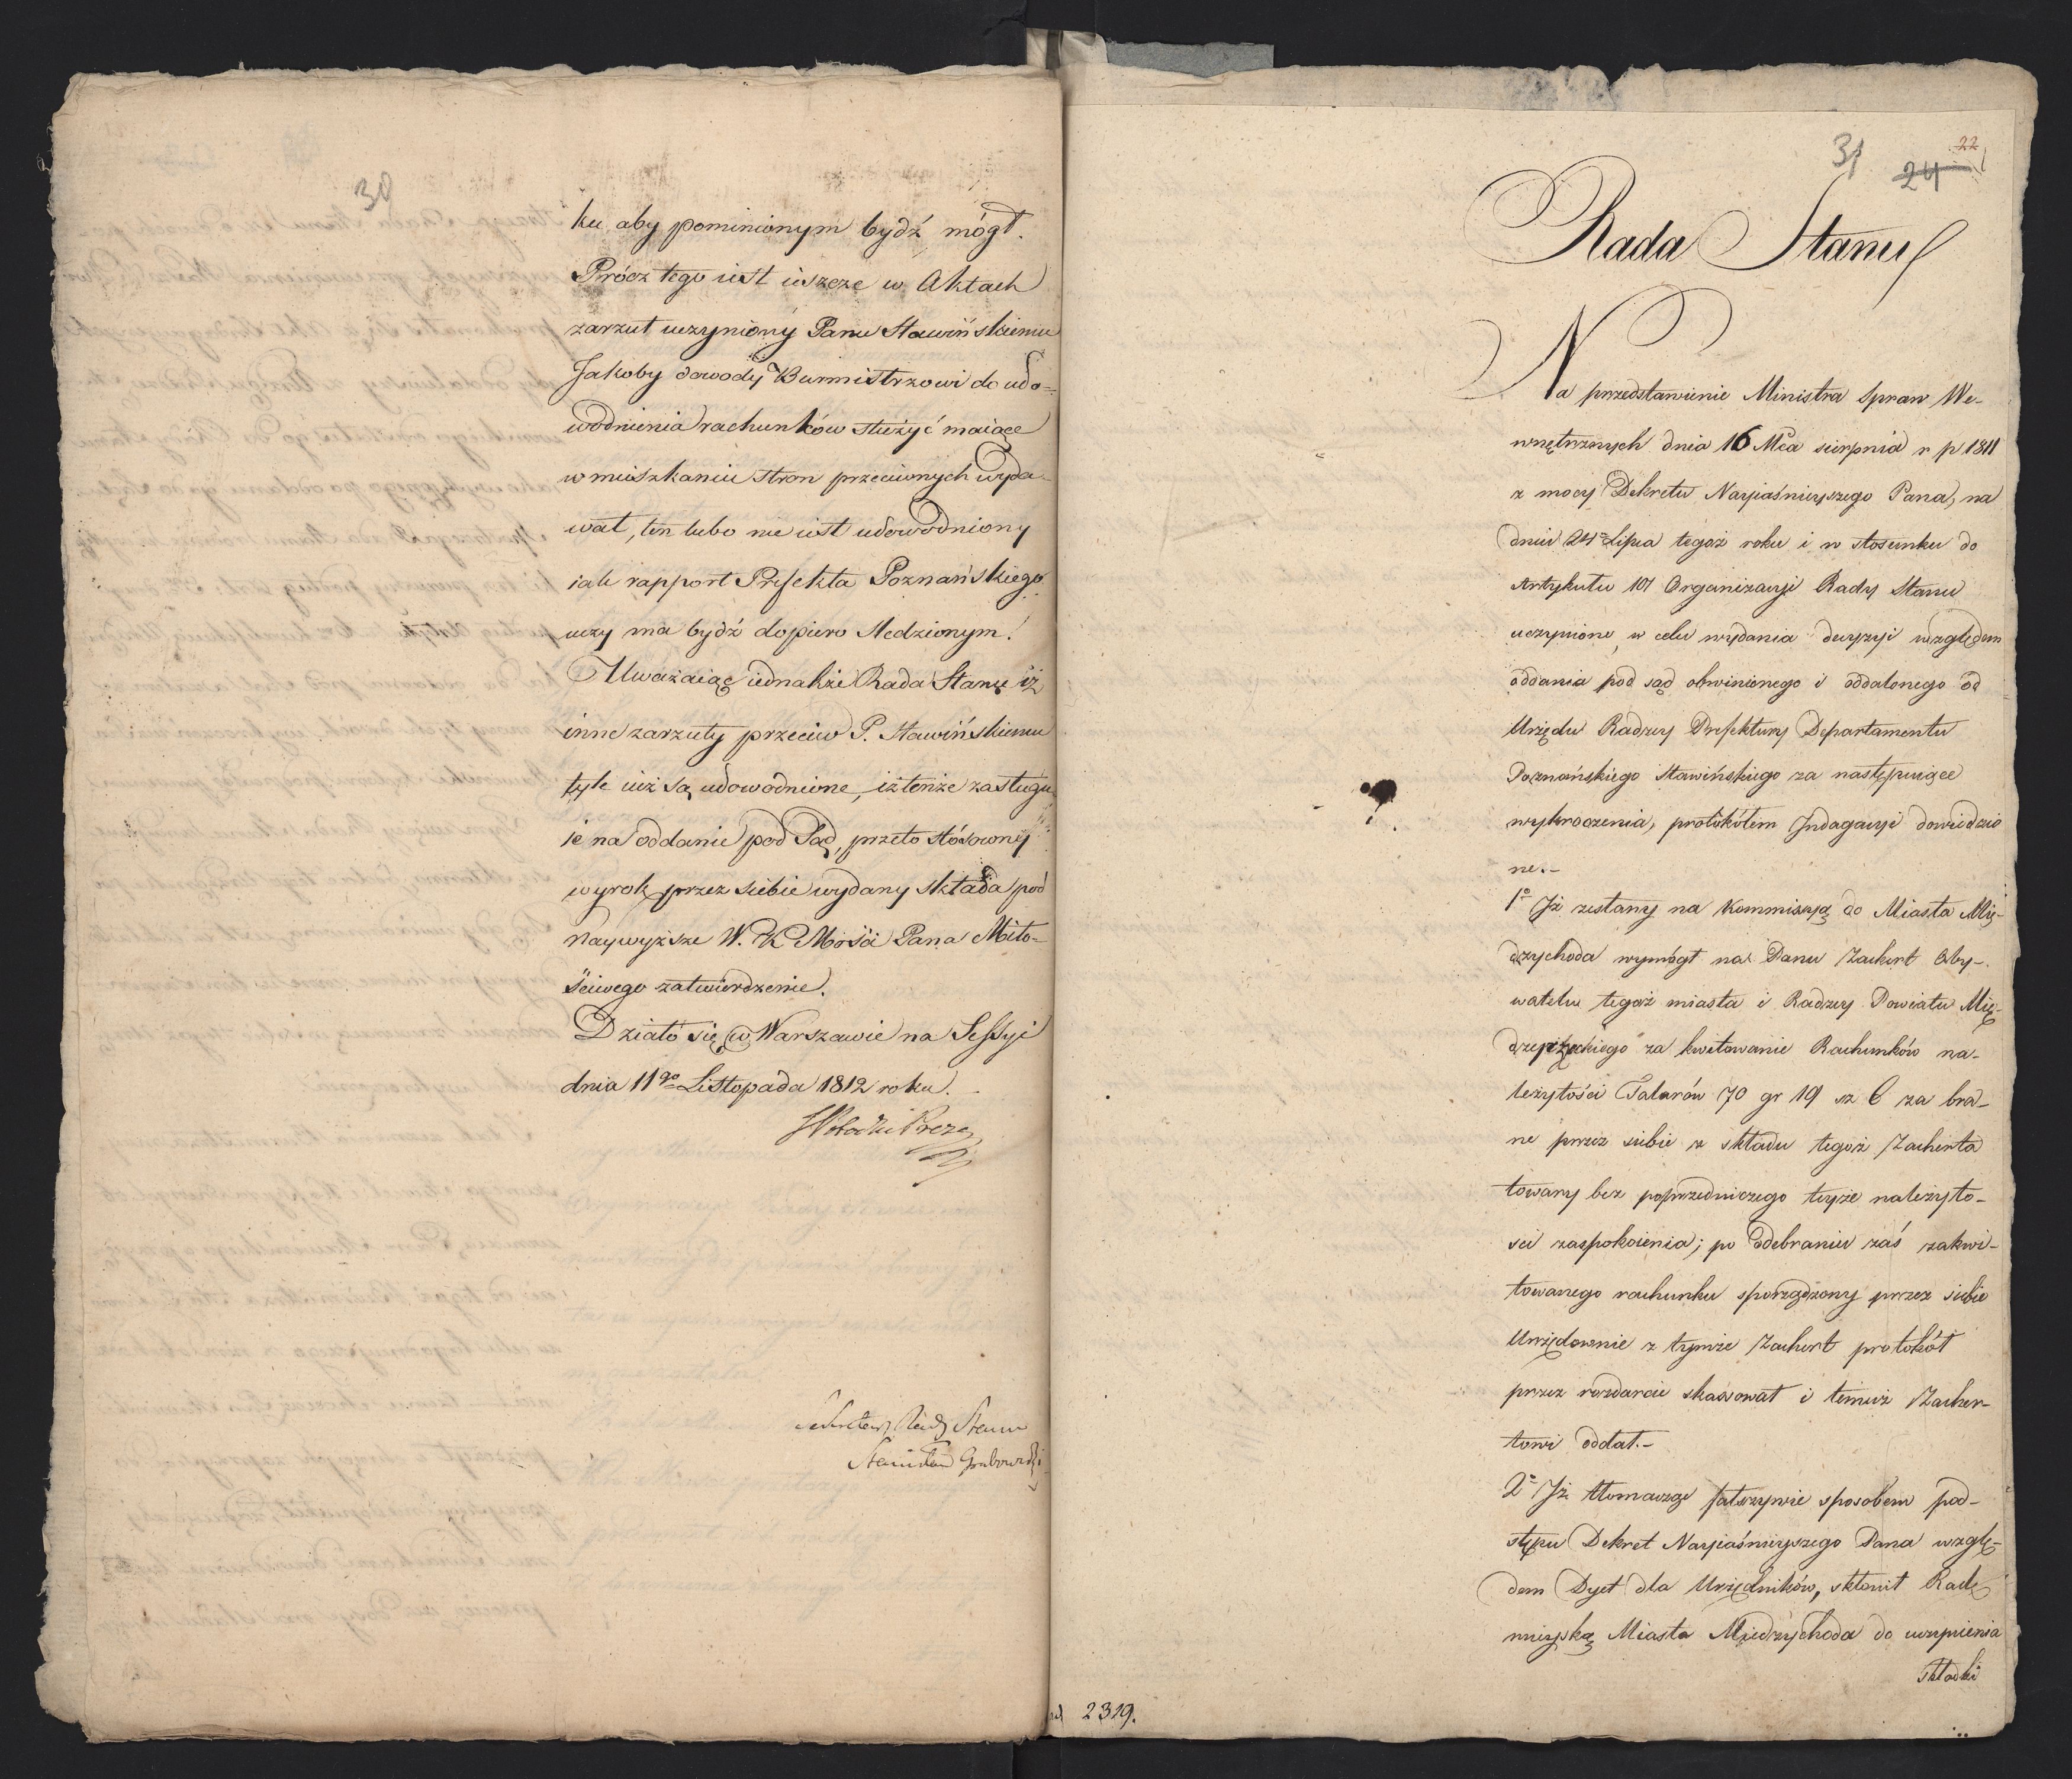 30
ku aby pominionym bydź mógł.
Prócz tego iest ieszcze w Aktach
zarzut uczyniony Panu Stawińskiemu
Jakoby dowody Burmistrzowi do udo=
wodnienia rachunków służyć maiące
w mieszkaniu stron przeciwnych wyda-
wał, ten lubo nie iest udowodniony
iak rapport Prefekta Poznańskiego
uczy ma bydź dopiero sledzionym.
Uważaiąc iednakże Rada Stanu iż
inne zarzuty przeciw P. Stawińskiemu
tyle iuż są udowodnione, iż tenże zasługu
ie na oddanie pod Sąd, przeto stósowny
wyrok przez siebie wydany składa pod
naywyższe W. K Mości Pana Miło-
ściwego zatwierdzenie.
Działo się w Warszawie na Sessyi
dnia 11go Listopada 1812 roku.
Prezes
Sekretarz Rady Stanu
Stanisław Grabowski
31
24
22
Rada Stanu
Na przedstawienie Ministra Spraw We-
wnętrznych dnia 16 Mca sierpnia r p 1811
z mocy Dekretu Nayiaśnieyszego Pana, na
dniu 24 Lipca tegoż roku i w stosunku do
Artykułu 101 Organizacyi Rady Stanu
uczynione, w celu wydania decyzyi względem
oddania pod sąd obwinionego i oddalonego od
Urzędu Radzcy Prefektury Departamentu
Poznańskiego Stawińskiego za następuiące
wykroczenia, protokółem Indagacyi dowiedzio
ne.-
1o Iż zesłany na Kommissyą do Miasta Mię-
dzychoda wymógł na Panu Zachert Oby-
watelu tegoż miasta i Radzcy Powiatu Mię-
dzyrzeckiego za kwitowanie Rachunków na-
leżytości Talarów 70 gr 19 sz 6 za bra-
ne przez siebie z składu tegoż Zacherta
towary bez poprzedniczego teyże należyto-
sci zaspokoienia; po odebraniu zaś zakwi-
towanego rachunku sporządzony przez siebie
Urzędownie z tymże Zachert protokół
przez rozdarcie skassował i temuż Zacher-
towi oddał.-
2o Iż tłomacząc fałszywie sposobem pod-
stępu Dekret Nayiaśnieyszego Pana wzglę-
dem Dyet dla Urzędników, skłonił Radę
mieyską Miasta Międzychoda do uczynienia
składki
2319.